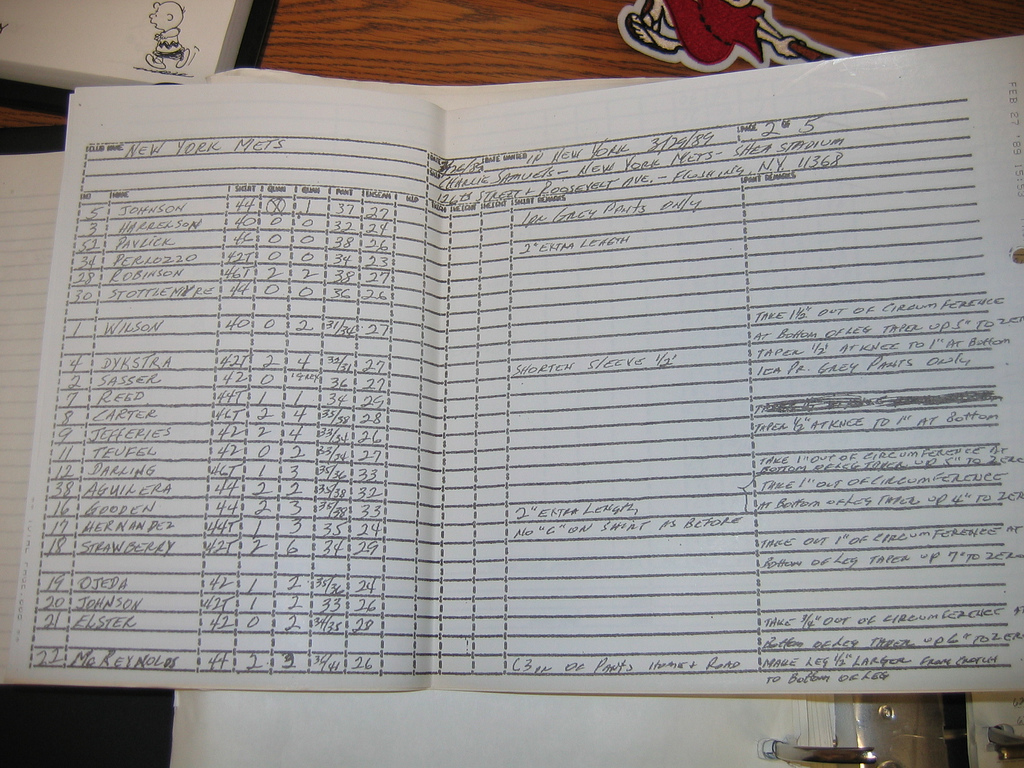 CLUB NAME NEW YORK METS
DATE WANTED IN NEW YORK 3/29/89 PAGE 2 OF 5
CHARLIE SAMUELS - NEW YORK METS - SHEA STADIUM
126th STREET & ROOSEVELT AVE. - FLUSHING, NY 11368
FEB 27 '89
NO NAME SHIRT QUAN QUAN PANT INSEAM SHIRT REMARKS PANT REMARKS
5 JOHNSON 44 1 37 27 1 PR GREY PANTS ONLY
3 HARRELSON 40 0 0 32 24
52 PAVLICK 46 0 0 38 26 2" EXTRA LENGTH
34 PERLOZZO 42T 0 0 34 23
28 ROBINSON 46T 2 2 38 27
30 STOTTLEMYRE 44 0 0 36 26
TAKE 1½" OUT OF CIRCUMFERENCE
1 WILSON 40 0 2 31/34 27 AT BOTTOM OF LEG TAPER UP 5" TO ZERO
TAPER ½" AT KNEE TO 1" AT BOTTOM
4 DYKSTRA 42T 2 4 27 SHORTEN SLEEVE ½" 1 EA PR. GREY PANTS ONLY
2 SASSER 42 0 1 GREY 36 27
7 REED 44T 1 1 34 29
8 CARTER 46T 2 4 35/38 28 TAPER ½" AT KNEE TO 1" AT BOTTOM
9 JEFFERIES 42 2 4 33/34 26
11 TEUFEL 42 0 2 27 TAKE 1" OUT OF CIRCUMFERENCE AT
12 DARLING 46T 1 3 35/36 33 BOTTOM OF LEG TAPER UP 5" TO ZERO
38 AGUILERA 44 2 2 35/38 32 TAKE 1" OUT OF CIRCUMFERENCE
16 GOODEN 44 2 3 35/38 33 2" EXTRA LENGTH AT BOTTOM OF LEG TAPER UP 4" TO ZERO
17 HERNANDEZ 44T 1 3 35 24 NO "C" ON SHIRT AS BEFORE
18 STRAWBERRY 42T 2 6 34 29 TAKE OUT 1" OF CIRCUMFERENCE AT
BOTTOM OF LEG TAPER UP 7" TO ZERO
19 OJEDA 42 1 2 35/36 24
20 JOHNSON 42T 1 2 33 26
21 ELSTER 42 0 2 34/35 28 TAKE ¾" OUT OF CIRCUMFERENCE AT
BOTTOM OF LEG TAPER UP 6" TO ZERO
22 McREYNOLDS 44 2 3 36/41 26 (3 PR OF PANTS HOME & ROAD MAKE LEG ½" LARGER FROM CROTCH
TO BOTTOM OF LEG